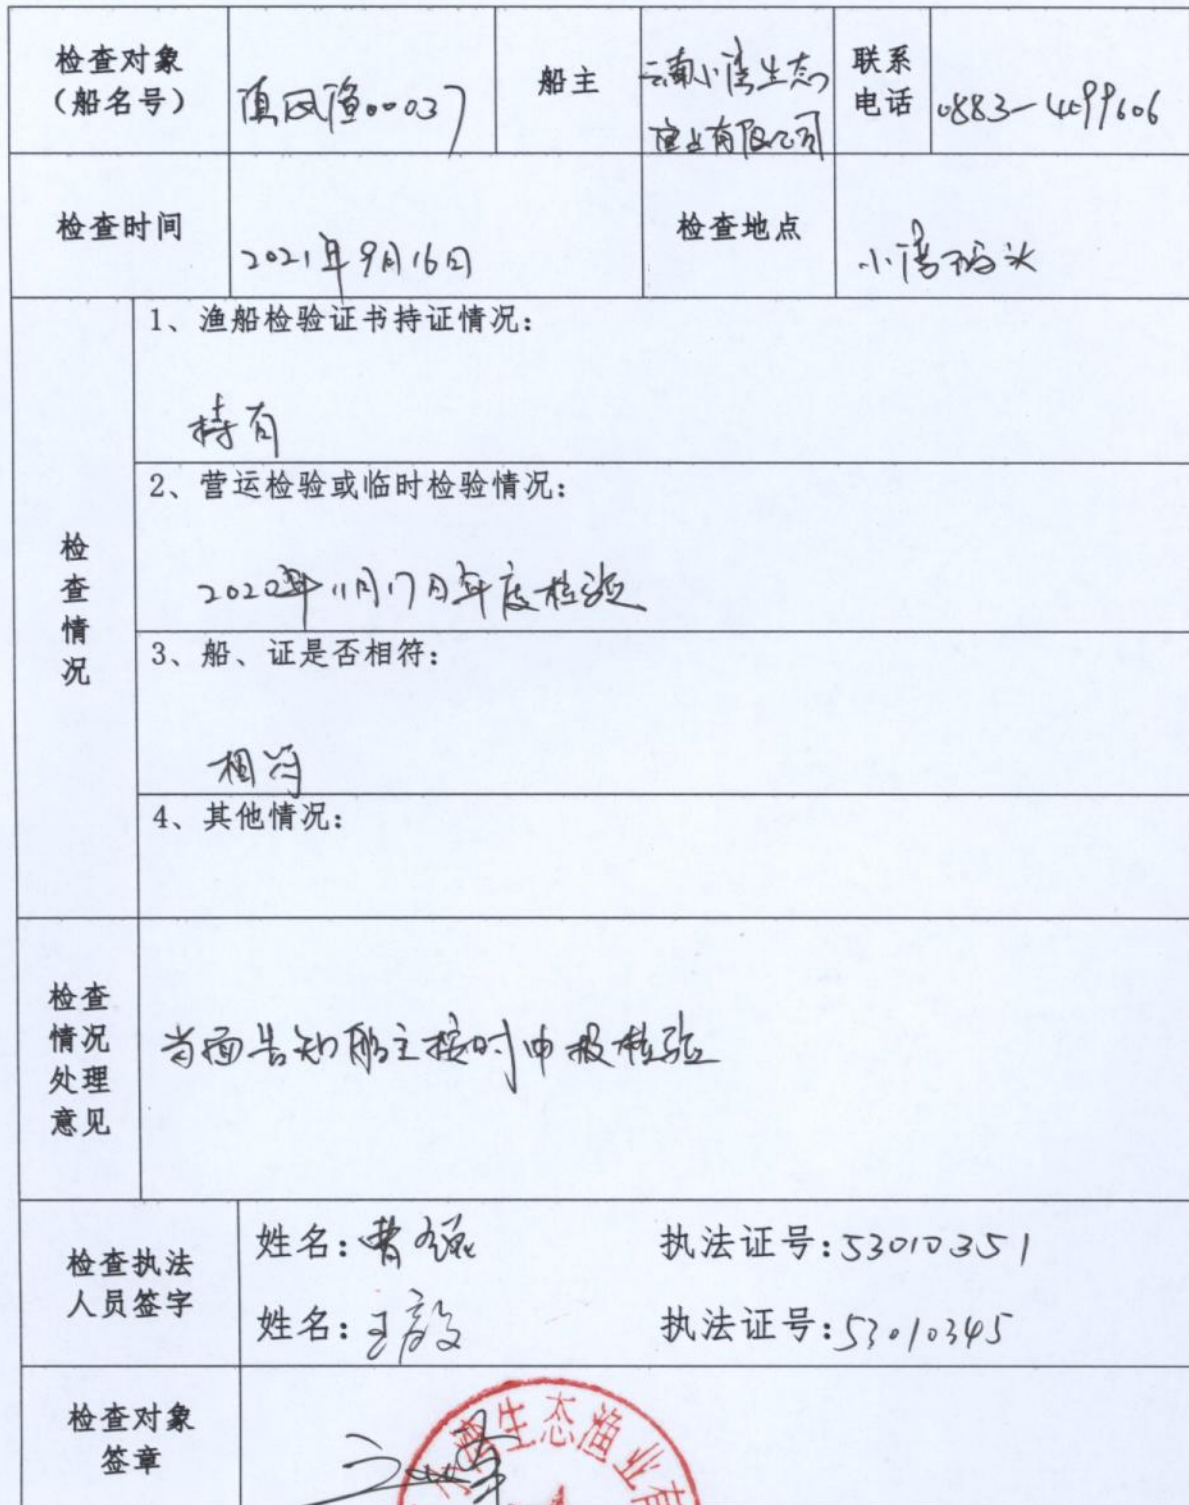 检查对象
（船名号）
滇凤渔00037
船主
云南小湾生态
渔业有限公司
联系
电话
0883-4499606
检查时间
2021年9月16日
检查地点
小湾码头
检查情况
1、渔船检验证书持证情况：
持有
2、营运检验或临时检验情况：
2020年11月17日年度检验
3、船、证是否相符：
相符
4、其他情况：
检查
情况
处理
意见
当面告知船主按时申报检验
检查执法
人员签字
姓名：曹强 执法证号：53010351
姓名：王毅 执法证号：53010345
检查对象
签章
小湾生态渔业有